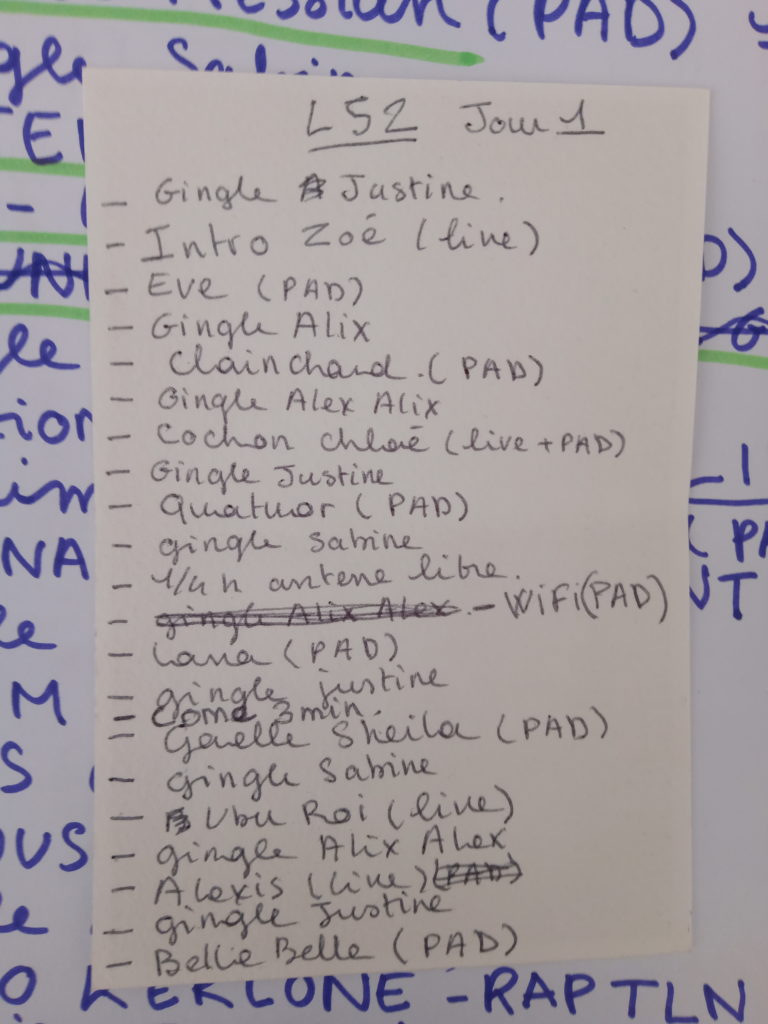 (PAD)
L52 Jour 1
- Gingle Justine.
- Intro Zoé (live)
- Eve (PAD)
- Gingle Alix
- Clainchard. (PAD)
- Gingle Alex Alix
- Cochon chloé (live + PAD)
- Gingle Justine
- Quatuor (PAD)
- gingle Sabine
- 1/4 h antene libre.
- gingle Alix Alex. - WiFi (PAD)
- Lana (PAD)
- gingle justine
- Come 3 min.
- Gaelle Sheila (PAD)
- gingle Sabine
- Ubu Roi (live)
- gingle Alix Alex
- Alexis (live) (PAD)
- gingle Justine
- Bellie Belle (PAD)
KERLONE - RAP TLN